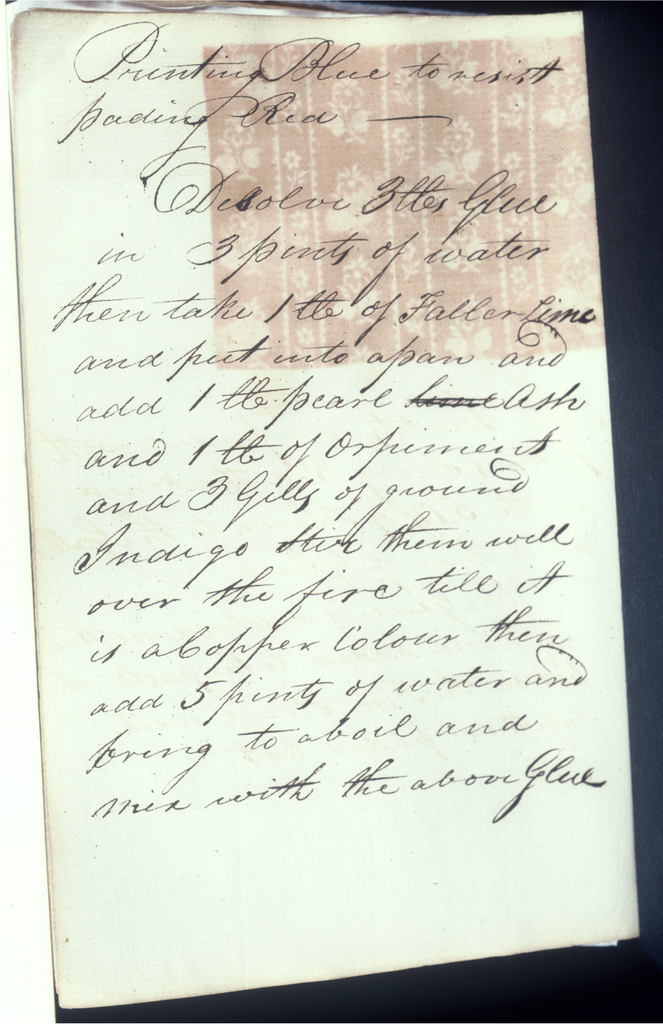 Printing Blue to resist
pading Red —
Desolve 3 lbs Glue
in 3 pints of water
then take 1 lb of Faller Lime
and put into a pan and
add 1 lb pearl ~~lime~~ Ash
and 1 lb of Orpiment
and 3 Gills of ground
Indigo stir them well
over the fire till it
is a Copper Colour then
add 5 pints of water and
bring to a boil and
mix with the above Glue